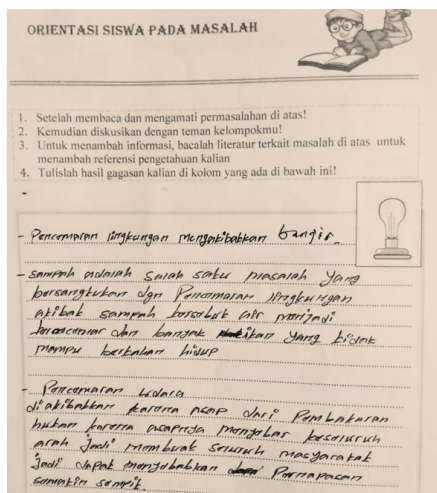 ORIENTASI SISWA PADA MASALAH
1. Setelah membaca dan mengamati permasalahan di atas!
2. Kemudian diskusikan dengan teman kelompokmu!
3. Untuk menambah informasi, bacalah literatur terkait masalah di atas untuk
menambah referensi pengetahuan kalian
4. Tulislah hasil gagasan kalian di kolom yang ada di bawah ini!
- Pencemaran lingkungan mengakibatkan banjir.
- sampah adalah salah satu masalah yang
bersangkutan dgn Pencemaran lingkungan
akibat sampah tersebut air menjadi
tercemar dan banyak ikan yang tidak
mampu bertahan hidup
- Pencemaran udara
diakibatkan karena asap dari Pembakaran
hutan karena asapnya menyebar keseluruh
arah Jadi membuat seluruh masyarakat
Jadi dapat menyebabkan Pernapasan
semakin sempit.